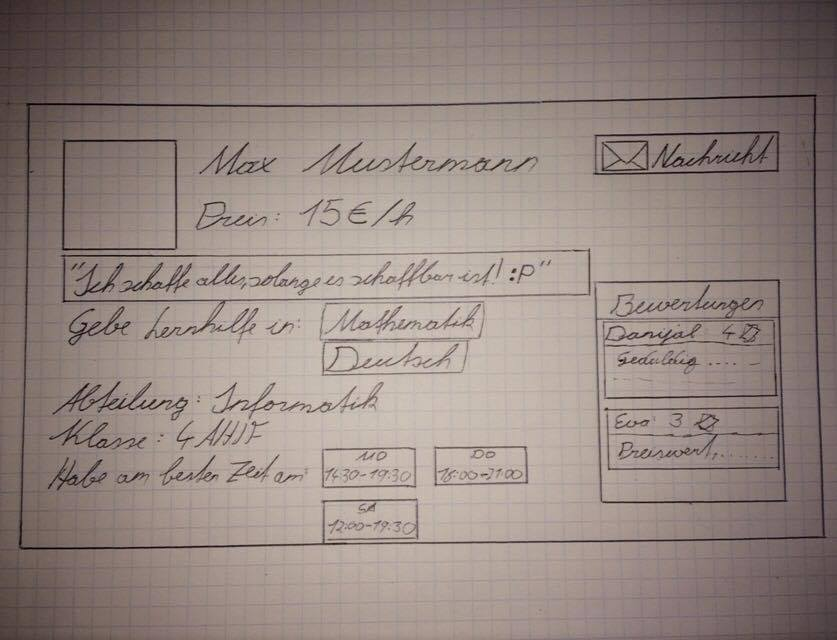 Max Mustermann
Preis: 15€/h
Nachricht
"Ich schaffe alles, solange es schaffbar ist! :P"
Gebe Lernhilfe in: Mathematik
Deutsch
Abteilung: Informatik
Klasse: 4AHIF
Habe am besten Zeit am:
MO
14:30-19:30
DO
16:00-21:00
SA
12:00-19:30
Bewertungen
Danijal 4☆
Geduldig.... ..
Eva 3☆
Preiswert,.......